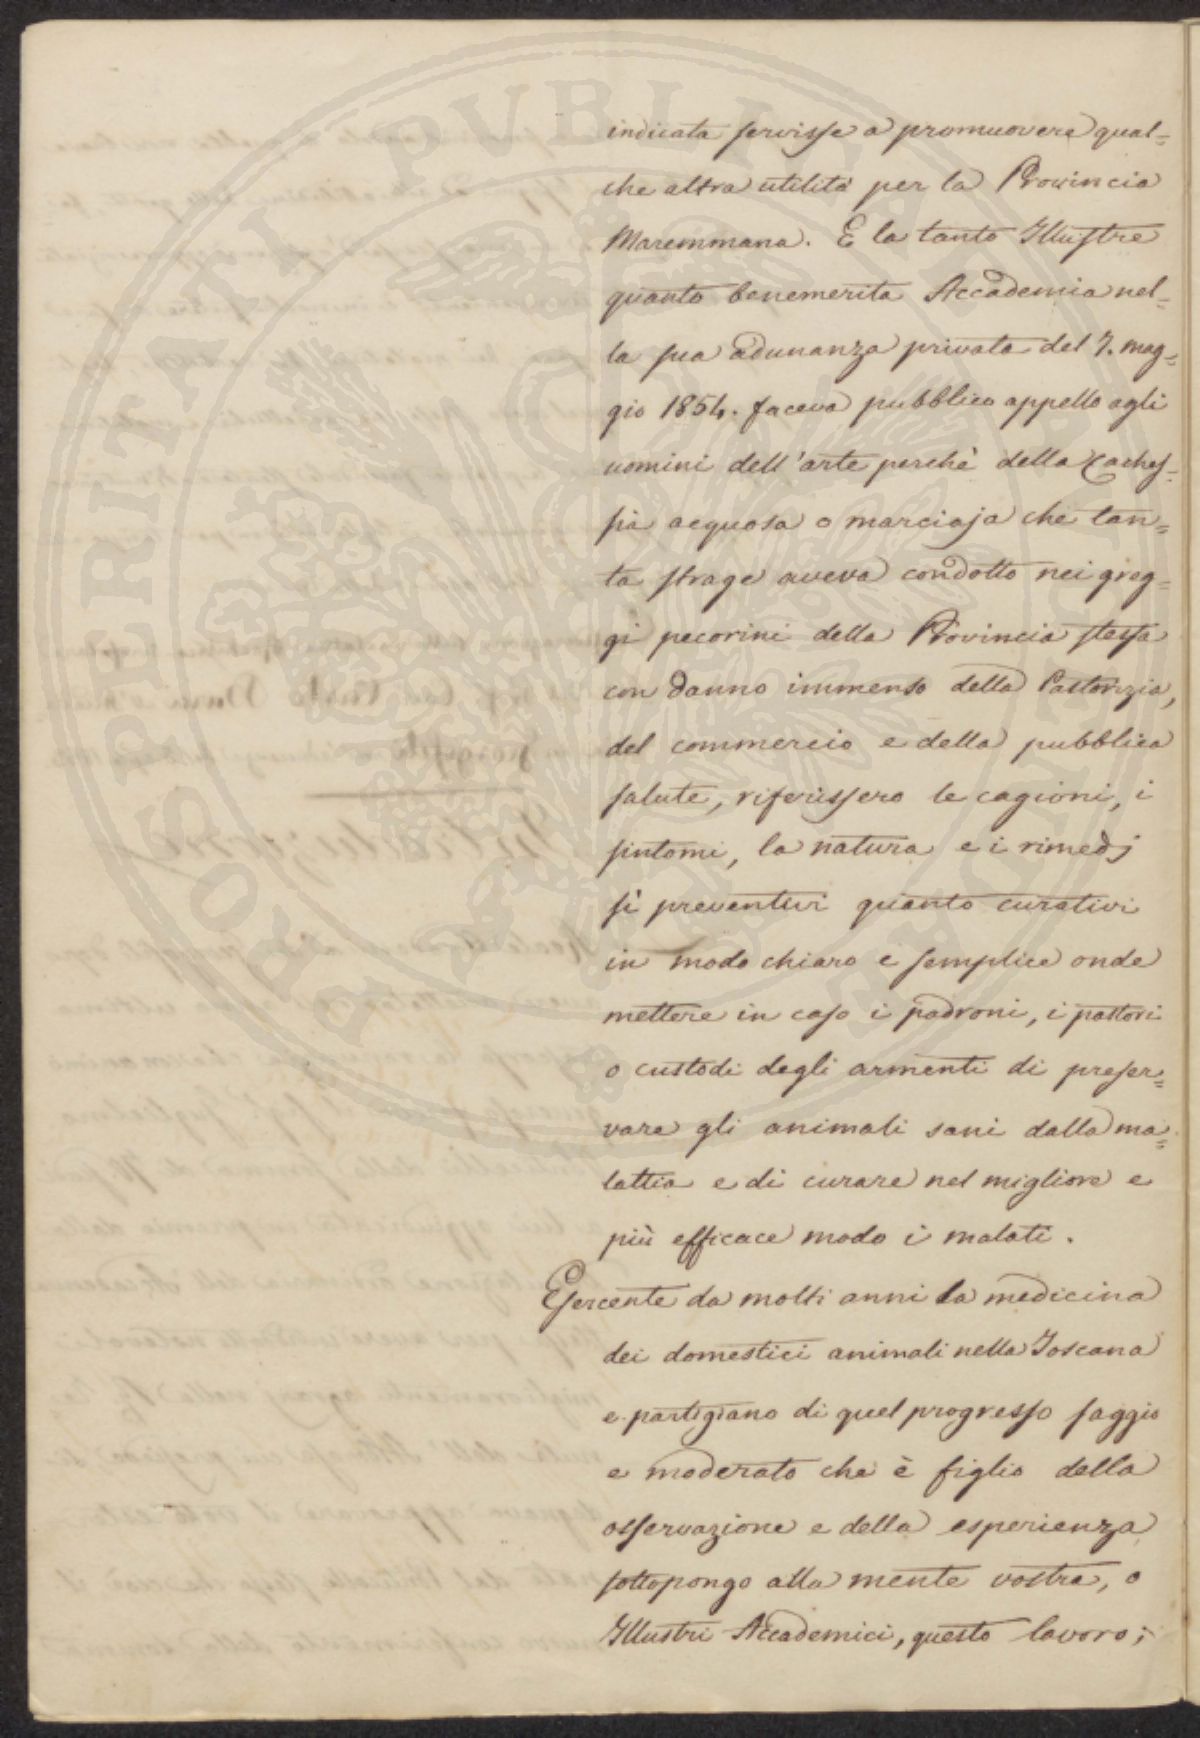 indicata servisse a promuovere qual=
che altra utilità per la Provincia
Maremmana. E la tanto Illustre
quanto benemerita Accademia nel=
la sua adunanza privata del 7. mag=
gio 1854. faceva pubblico appello agli
uomini dell'arte perchè della Caches=
sia acquosa o marciaja che tan=
ta strage aveva condotto nei greg=
gi pecorini della Provincia stessa
con danno immenso della Pastorizia,
del commercio e della pubblica
salute, riferissero le cagioni, i
sintomi, la natura e i rimedj
sì preventivi quanto curativi
in modo chiaro e semplice onde
mettere in caso i padroni, i pastori
o custodi degli armenti di preser=
vare gli animali sani dalla ma=
lattia e di curare nel migliore e
più efficace modo i malati.
Esercente da molti anni la medicina
dei domestici animali nella Toscana
e partigiano di quel progresso saggio
e moderato che è figlio della
osservazione e della esperienza
sottopongo alla mente vostra, o
Illustri Accademici, questo lavoro;
PROSPERITATI PUBLICAE AUGENDAE